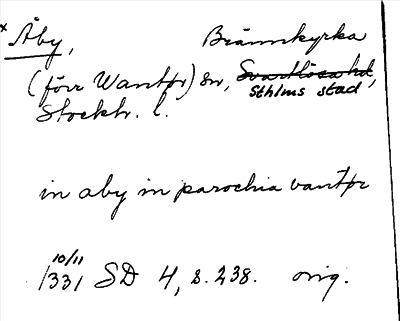 x Åby, Brännkyrka
(förr Wantör) sn, Svartlösa hd,
Sthlms stad
Stockh. l.
in aby in parochia vantør
10/11
1331 SD 4, s. 238. orig.